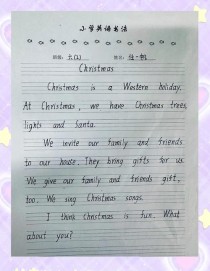 小学英语书法
班级:
姓名:
Christmas
Christmas is a Western holiday.
At Christmas, we have Christmas trees,
lights and Santa.
We invite our family and friends
to our house. They bring gifts for us.
We give our family and friends gift,
too. We sing Christmas songs.
I think Christmas is fun. What
about you?